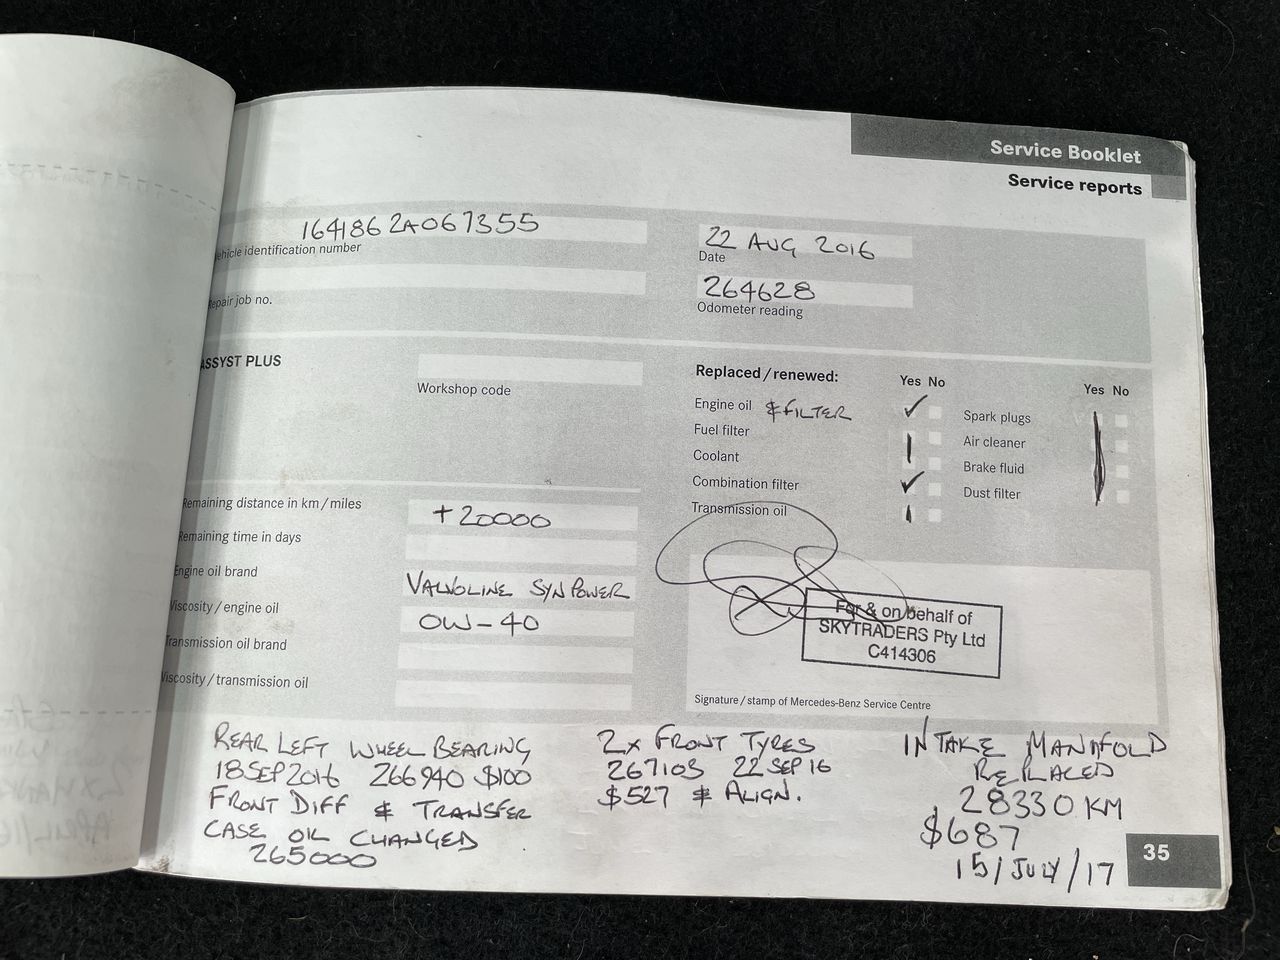 Service Booklet
Service reports
1641862A067355
ehicle identification number
22 AUG 2016
Date
epair job no.
264628
Odometer reading
ASSYST PLUS
Workshop code
Replaced / renewed:
Yes No
Yes No
Engine oil & FILTER
Fuel filter
Coolant
Combination filter
Transmission oil
Spark plugs
Air cleaner
Brake fluid
Dust filter
Remaining distance in km / miles
+20000
Remaining time in days
Engine oil brand
VALVOLINE SYNPOWER
Viscosity / engine oil
0W-40
Transmission oil brand
Viscosity / transmission oil
For & on behalf of
SKYTRADERS Pty Ltd
C414306
Signature / stamp of Mercedes-Benz Service Centre
REAR LEFT WHEEL BEARING
18 SEP 2016 266940 $100
FRONT DIFF & TRANSFER
CASE OIL CHANGED
265000
2x FRONT TYRES
267103 22 SEP 16
$527 & ALIGN.
INTAKE MANIFOLD
REPLACED
28330 KM
$687
15/JULY/17
35